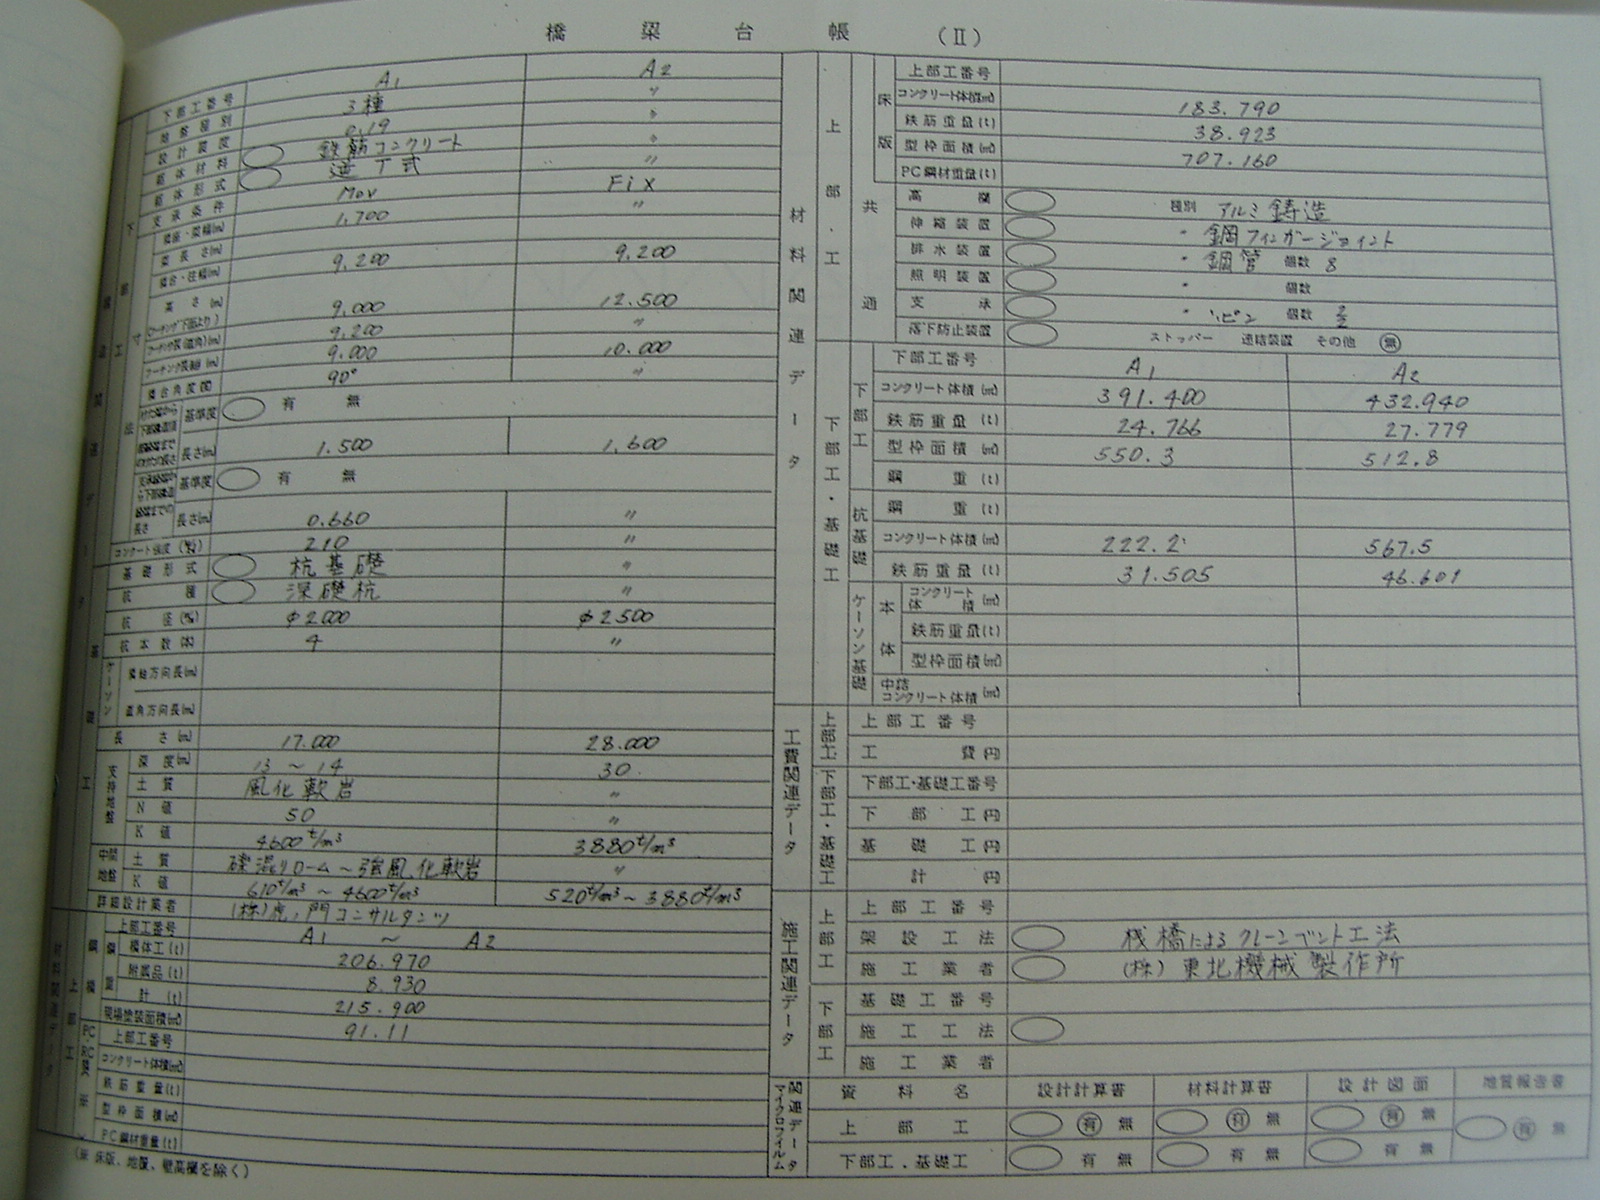 橋梁台帳 (Ⅱ)
下部工番号 A1 A2
地盤種別 3種 〃
設計震度 0.19 〃
躯体材料 鉄筋コンクリート 〃
躯体形式 逆T式 〃
支承条件 Mov Fix
1.700 〃
9.200 9.200
高さ(m) 9.000 12.500
9.200 〃
9.000 10.000
90° 〃
基準度 有 無
長さ(m) 1.500 1.600
基準度 有 無
長さ(m) 0.660 〃
210 〃
基礎形式 杭基礎 〃
杭種 深礎杭 〃
杭径 φ2000 φ2500
杭本数(本) 4 〃
ケーソン
橋軸方向長(m)
直角方向長(m)
長さ(m) 17.000 28.000
支持地盤
深度(m) 13 ～ 14 30
土質 風化軟岩 〃
N値 50 〃
K値 4600t/m³ 3880t/m³
中間地盤
土質 礫混りローム～強風化軟岩 〃
K値 610t/m³ ～ 4600t/m³ 520t/m³ ～ 3880t/m³
詳細設計業者 (株)虎ノ門コンサルタンツ
上部工番号 A1 ～ A2
模体工(t) 206.970
附属品(t) 8.930
計(t) 215.900
現場塗装面積(㎡) 91.11
上部工番号
コンクリート体積(㎥)
鉄筋重量(t)
型枠面積(㎡)
PC鋼材重量(t)
(※ 床版、地覆、壁高欄を除く)
材料関連データ
上部工
共通
床版
上部工番号
コンクリート体積(㎥) 183.790
鉄筋重量(t) 38.923
型枠面積(㎡) 707.160
PC鋼材重量(t)
高欄 種別 アルミ鋳造
伸縮装置 〃 鋼フィンガージョイント
排水装置 〃 鋼管 個数 8
照明装置 〃 個数
支承 〃 ピン 個数 2/2
落下防止装置 ストッパー 連結装置 その他 無
下部工・基礎工
下部工
下部工番号 A1 A2
コンクリート体積(㎥) 391.400 432.940
鉄筋重量(t) 24.766 27.779
型枠面積(㎡) 550.3 512.8
鋼重(t)
杭基礎
鋼重(t)
コンクリート体積(㎥) 222.2 567.5
鉄筋重量(t) 31.505 46.601
ケーソン基礎
本体
コンクリート体積(㎥)
鉄筋重量(t)
型枠面積(㎡)
中詰コンクリート体積(㎥)
工費関連データ
上部工
上部工番号
工費円
下部工・基礎工
下部工・基礎工番号
下部工円
基礎工円
計円
施工関連データ
上部工
上部工番号
架設工法 桟橋によるクレーンベント工法
施工業者 (株)東北機械製作所
下部工
基礎工番号
施工工法
施工業者
関連データ マイクロフィルム
資料名 設計計算書 材料計算書 設計図面 地質報告書
上部工 有 無 有 無 有 無 有 無
下部工・基礎工 有 無 有 無 有 無